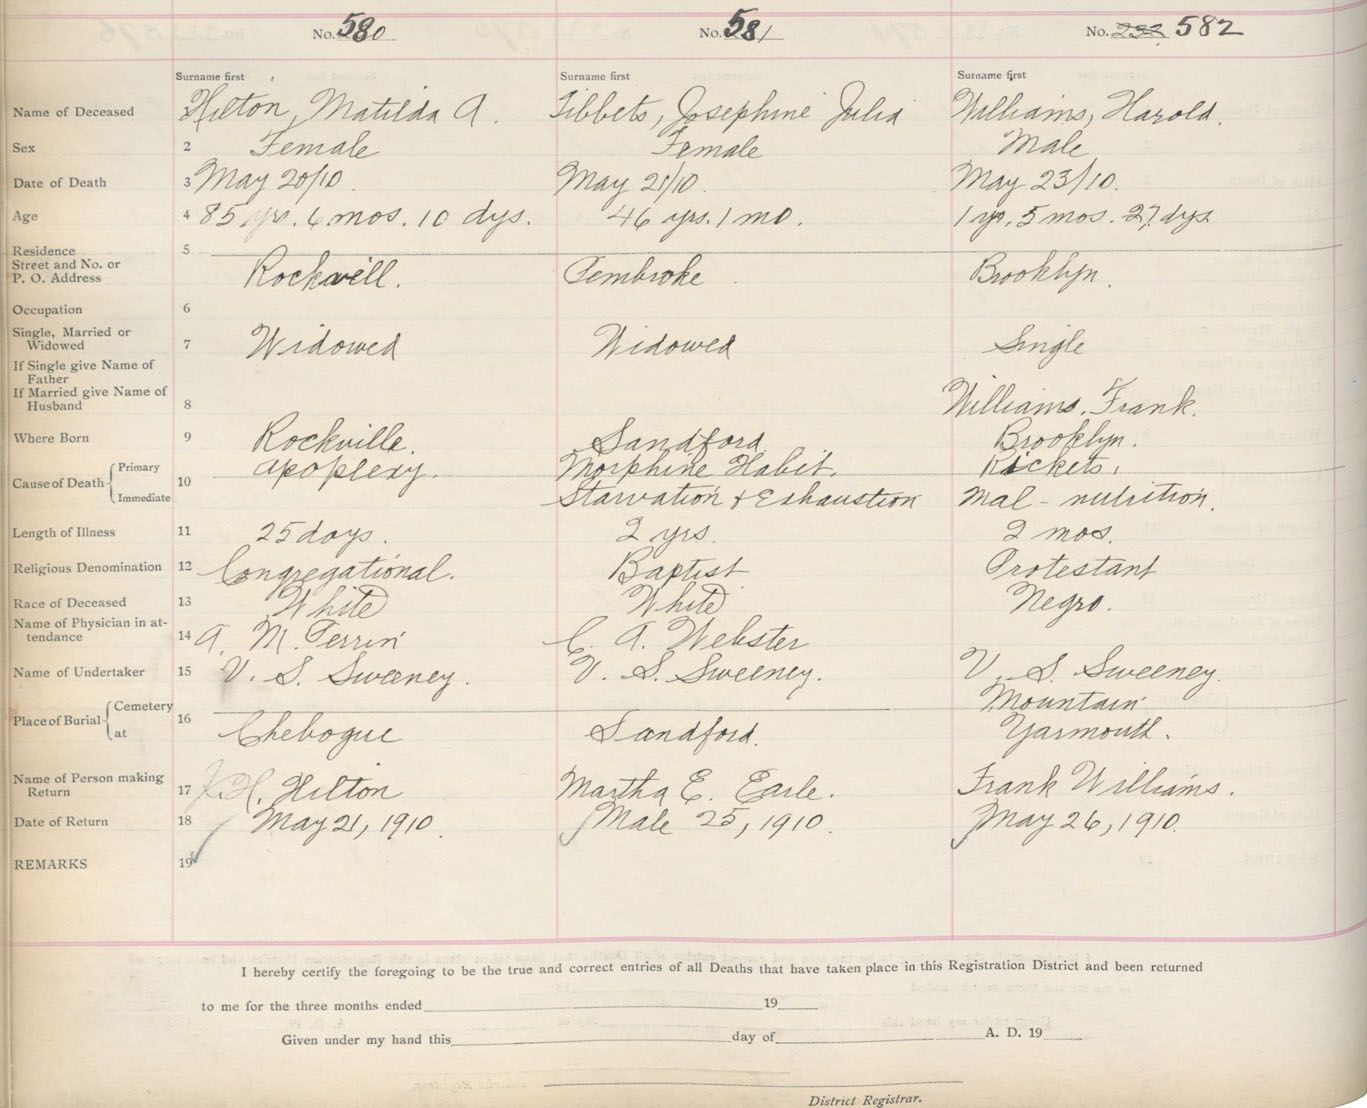 No. 580 No. 581 No. 232 582
Surname first Surname first Surname first
Name of Deceased 1 Hilton, Matilda A. Tibbets, Josephine Julia Williams, Harold.
Sex 2 Female Female Male
Date of Death 3 May 20/10. May 21/10. May 23/10.
Age 4 85 yrs. 6 mos. 10 dys. 46 yrs. 1 mo. 1 yr, 5 mos. 27 dys.
Residence 5
Street and No. or
P. O. Address Rockvill. Pembroke Brooklyn.
Occupation 6
Single, Married or
Widowed 7 Widowed Widowed Single
If Single give Name of
Father
If Married give Name of
Husband 8 Williams, Frank.
Where Born 9 Rockville. Sandford Brooklyn.
Cause of Death Primary 10 apoplexy. Morphine Habit. Rickets.
Immediate Starvation & Exhaustion Mal-nutrition.
Length of Illness 11 25 days. 2 yrs. 2 mos.
Religious Denomination 12 Congregational. Baptist Protestant
Race of Deceased 13 White White Negro.
Name of Physician in at-
tendance 14 A. M. Perrin C. A. Webster
Name of Undertaker 15 V. S. Sweeney. V. S. Sweeney. V. S. Sweeney.
Place of Burial Cemetery 16 Mountain
at Chebogue Sandford. Yarmouth.
Name of Person making
Return 17 J. H. Hilton Martha E. Earle. Frank Williams.
Date of Return 18 May 21, 1910. Male 25, 1910. May 26, 1910.
REMARKS 19
I hereby certify the foregoing to be the true and correct entries of all Deaths that have taken place in this Registration District and been returned
to me for the three months ended 19
Given under my hand this day of A. D. 19
District Registrar.